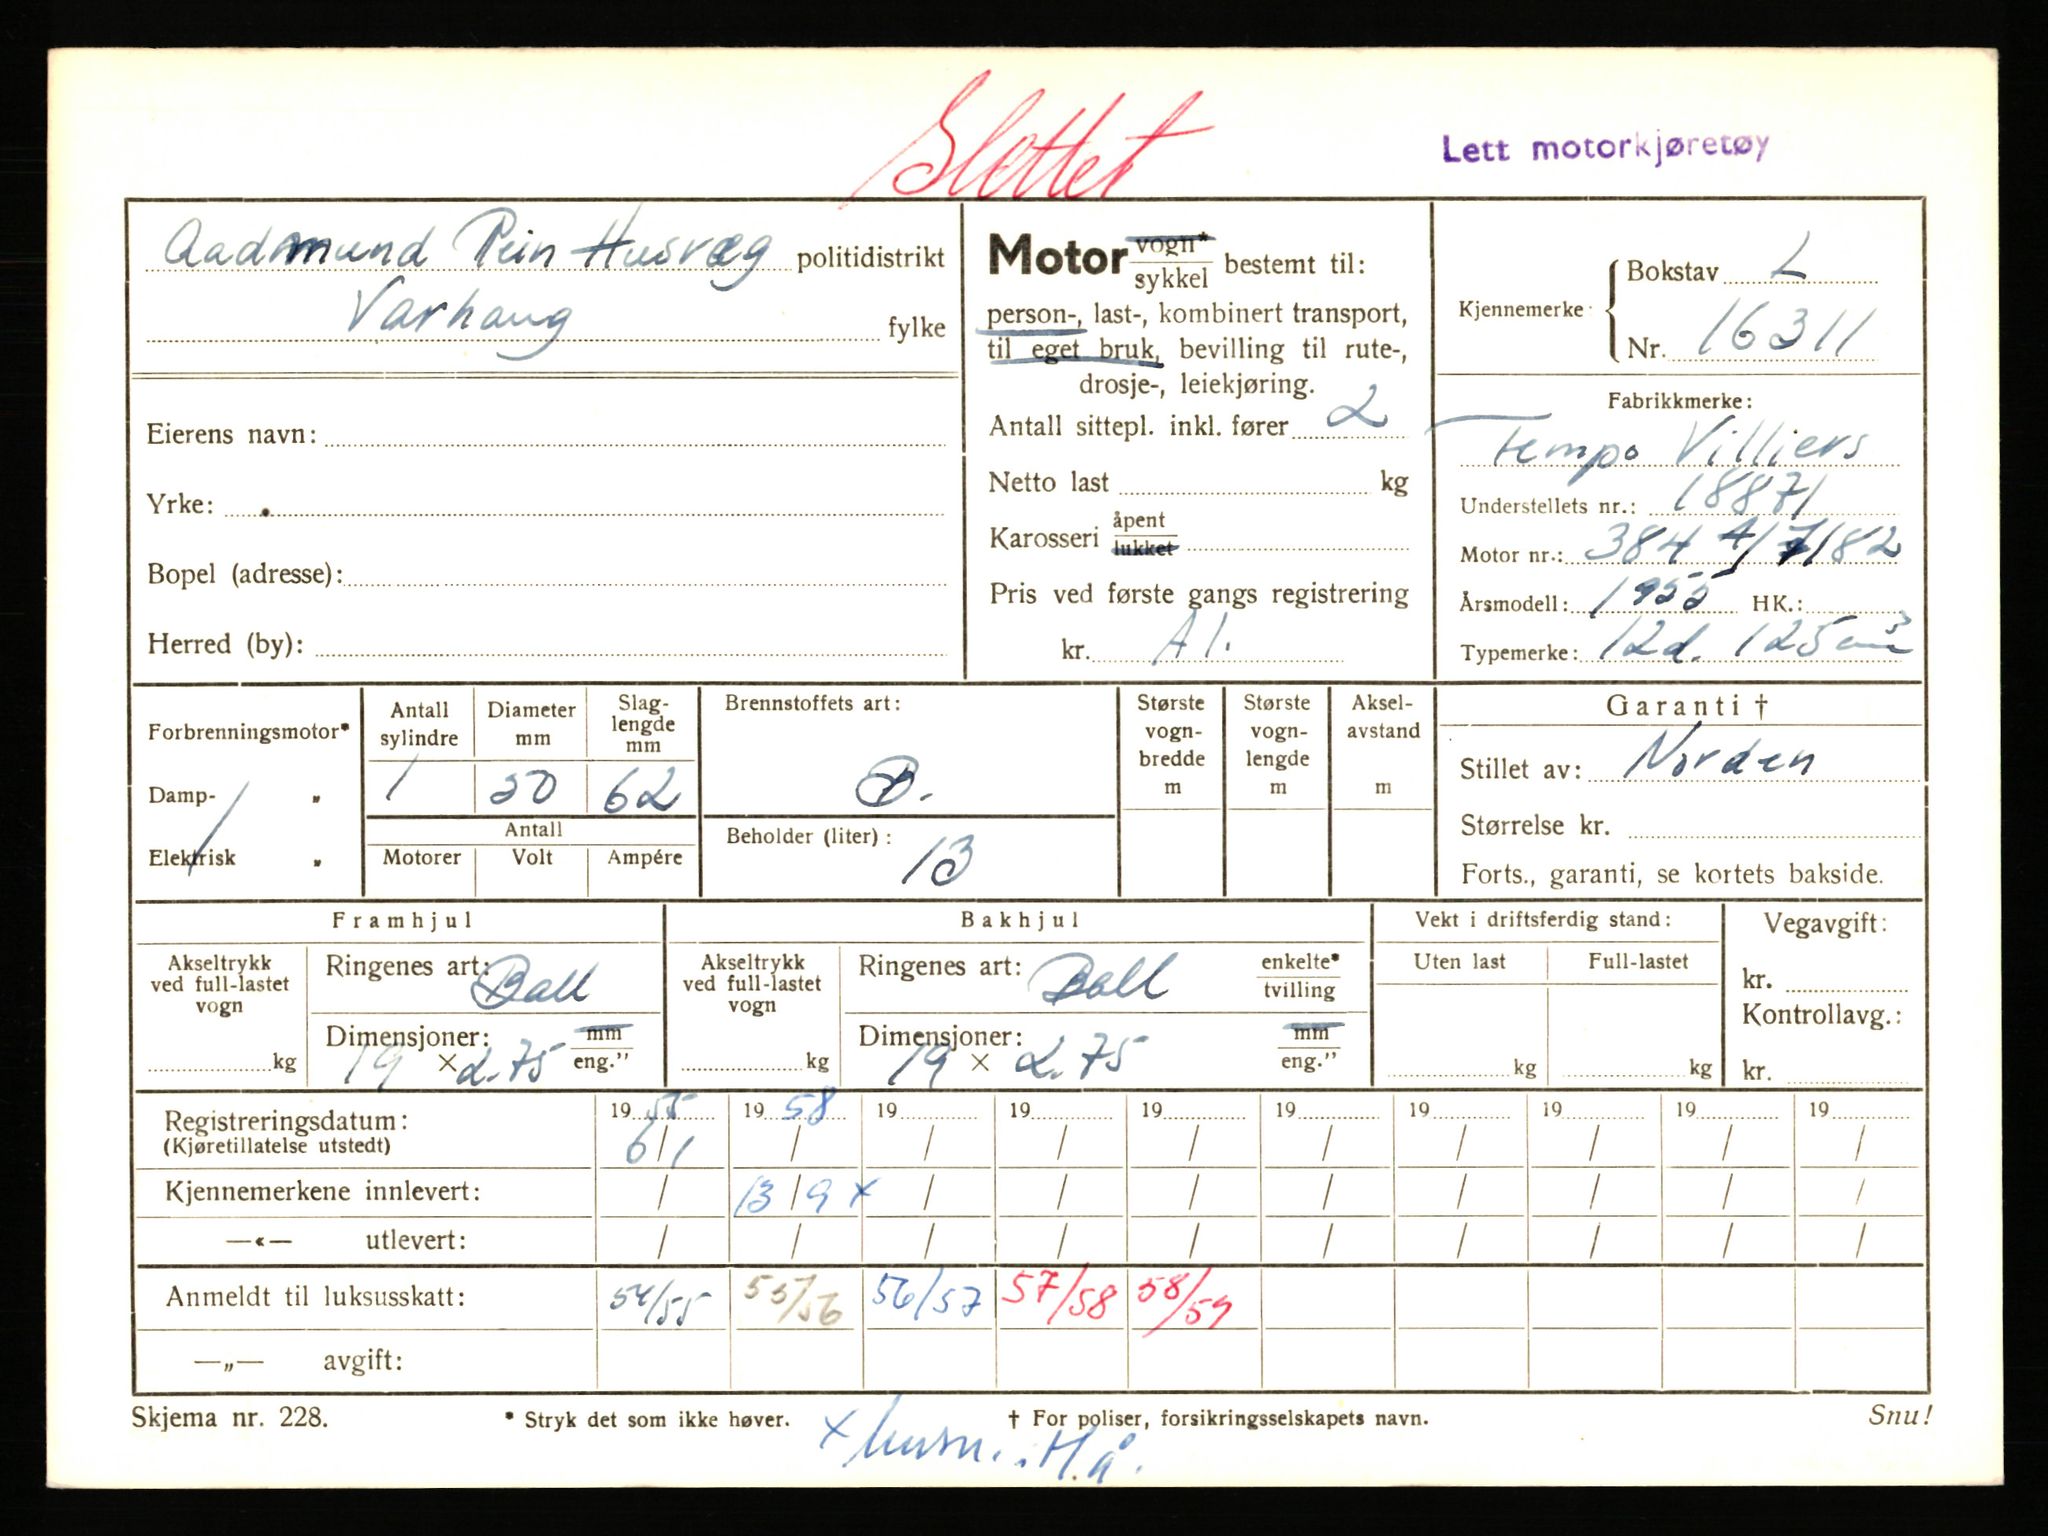 Slettet
Lett motorkjøretøy
Aadmund Husvæg politidistrikt
Varhaug fylke
Eierens navn:
Yrke:
Bopel (adresse):
Herred (by):
Motor vogn* sykkel bestemt til:
person-, last-, kombinert transport,
til eget bruk, bevilling til rute-,
drosje-, leiekjøring.
Antall sittepl. inkl. fører 2
Netto last kg
Karosseri åpent lukket
Pris ved første gangs registrering
kr. A1.
Kjennemerke: Bokstav L
Nr. 16311
Fabrikkmerke:
Tempo Villiers
Understellets nr.: 18871
Motor nr.: 384 A/7/82
Årsmodell: 1955 HK.:
Typemerke: 12d. 125 cm³
Forbrenningsmotor*
Damp- „
Elektrisk „
Antall sylindre
1
Diameter mm
50
Slaglengde mm
62
Antall
Motorer Volt Ampére
Brennstoffets art:
B.
Beholder (liter):
13
Største vognbredde m
Største vognlengde m
Akselavstand m
Garanti †
Stillet av: Norden
Størrelse kr.
Forts., garanti, se kortets bakside.
Framhjul
Akseltrykk ved full-lastet vogn
kg
Ringenes art: Ball
Dimensjoner: mm
19 × 2.75 eng.”
Bakhjul
Akseltrykk ved full-lastet vogn
kg
Ringenes art: Ball enkelte* tvilling
Dimensjoner: mm
19 × 2.75 eng.”
Vekt i driftsferdig stand:
Uten last Full-lastet
kg kg
Vegavgift:
kr.
Kontrollavg.:
kr.
Registreringsdatum: 19 55 19 58 19 19 19 19 19 19 19 19
(Kjøretillatelse utstedt) 6/1 / / / / / / / / /
Kjennemerkene innlevert: / 13/9 x / / / / / / / /
—«— utlevert: / / / / / / / / / /
Anmeldt til luksusskatt: 54/55 55/56 56/57 57/58 58/59
—„— avgift:
Skjema nr. 228. * Stryk det som ikke høver. † For poliser, forsikringsselskapets navn. Snu!
x H.å.